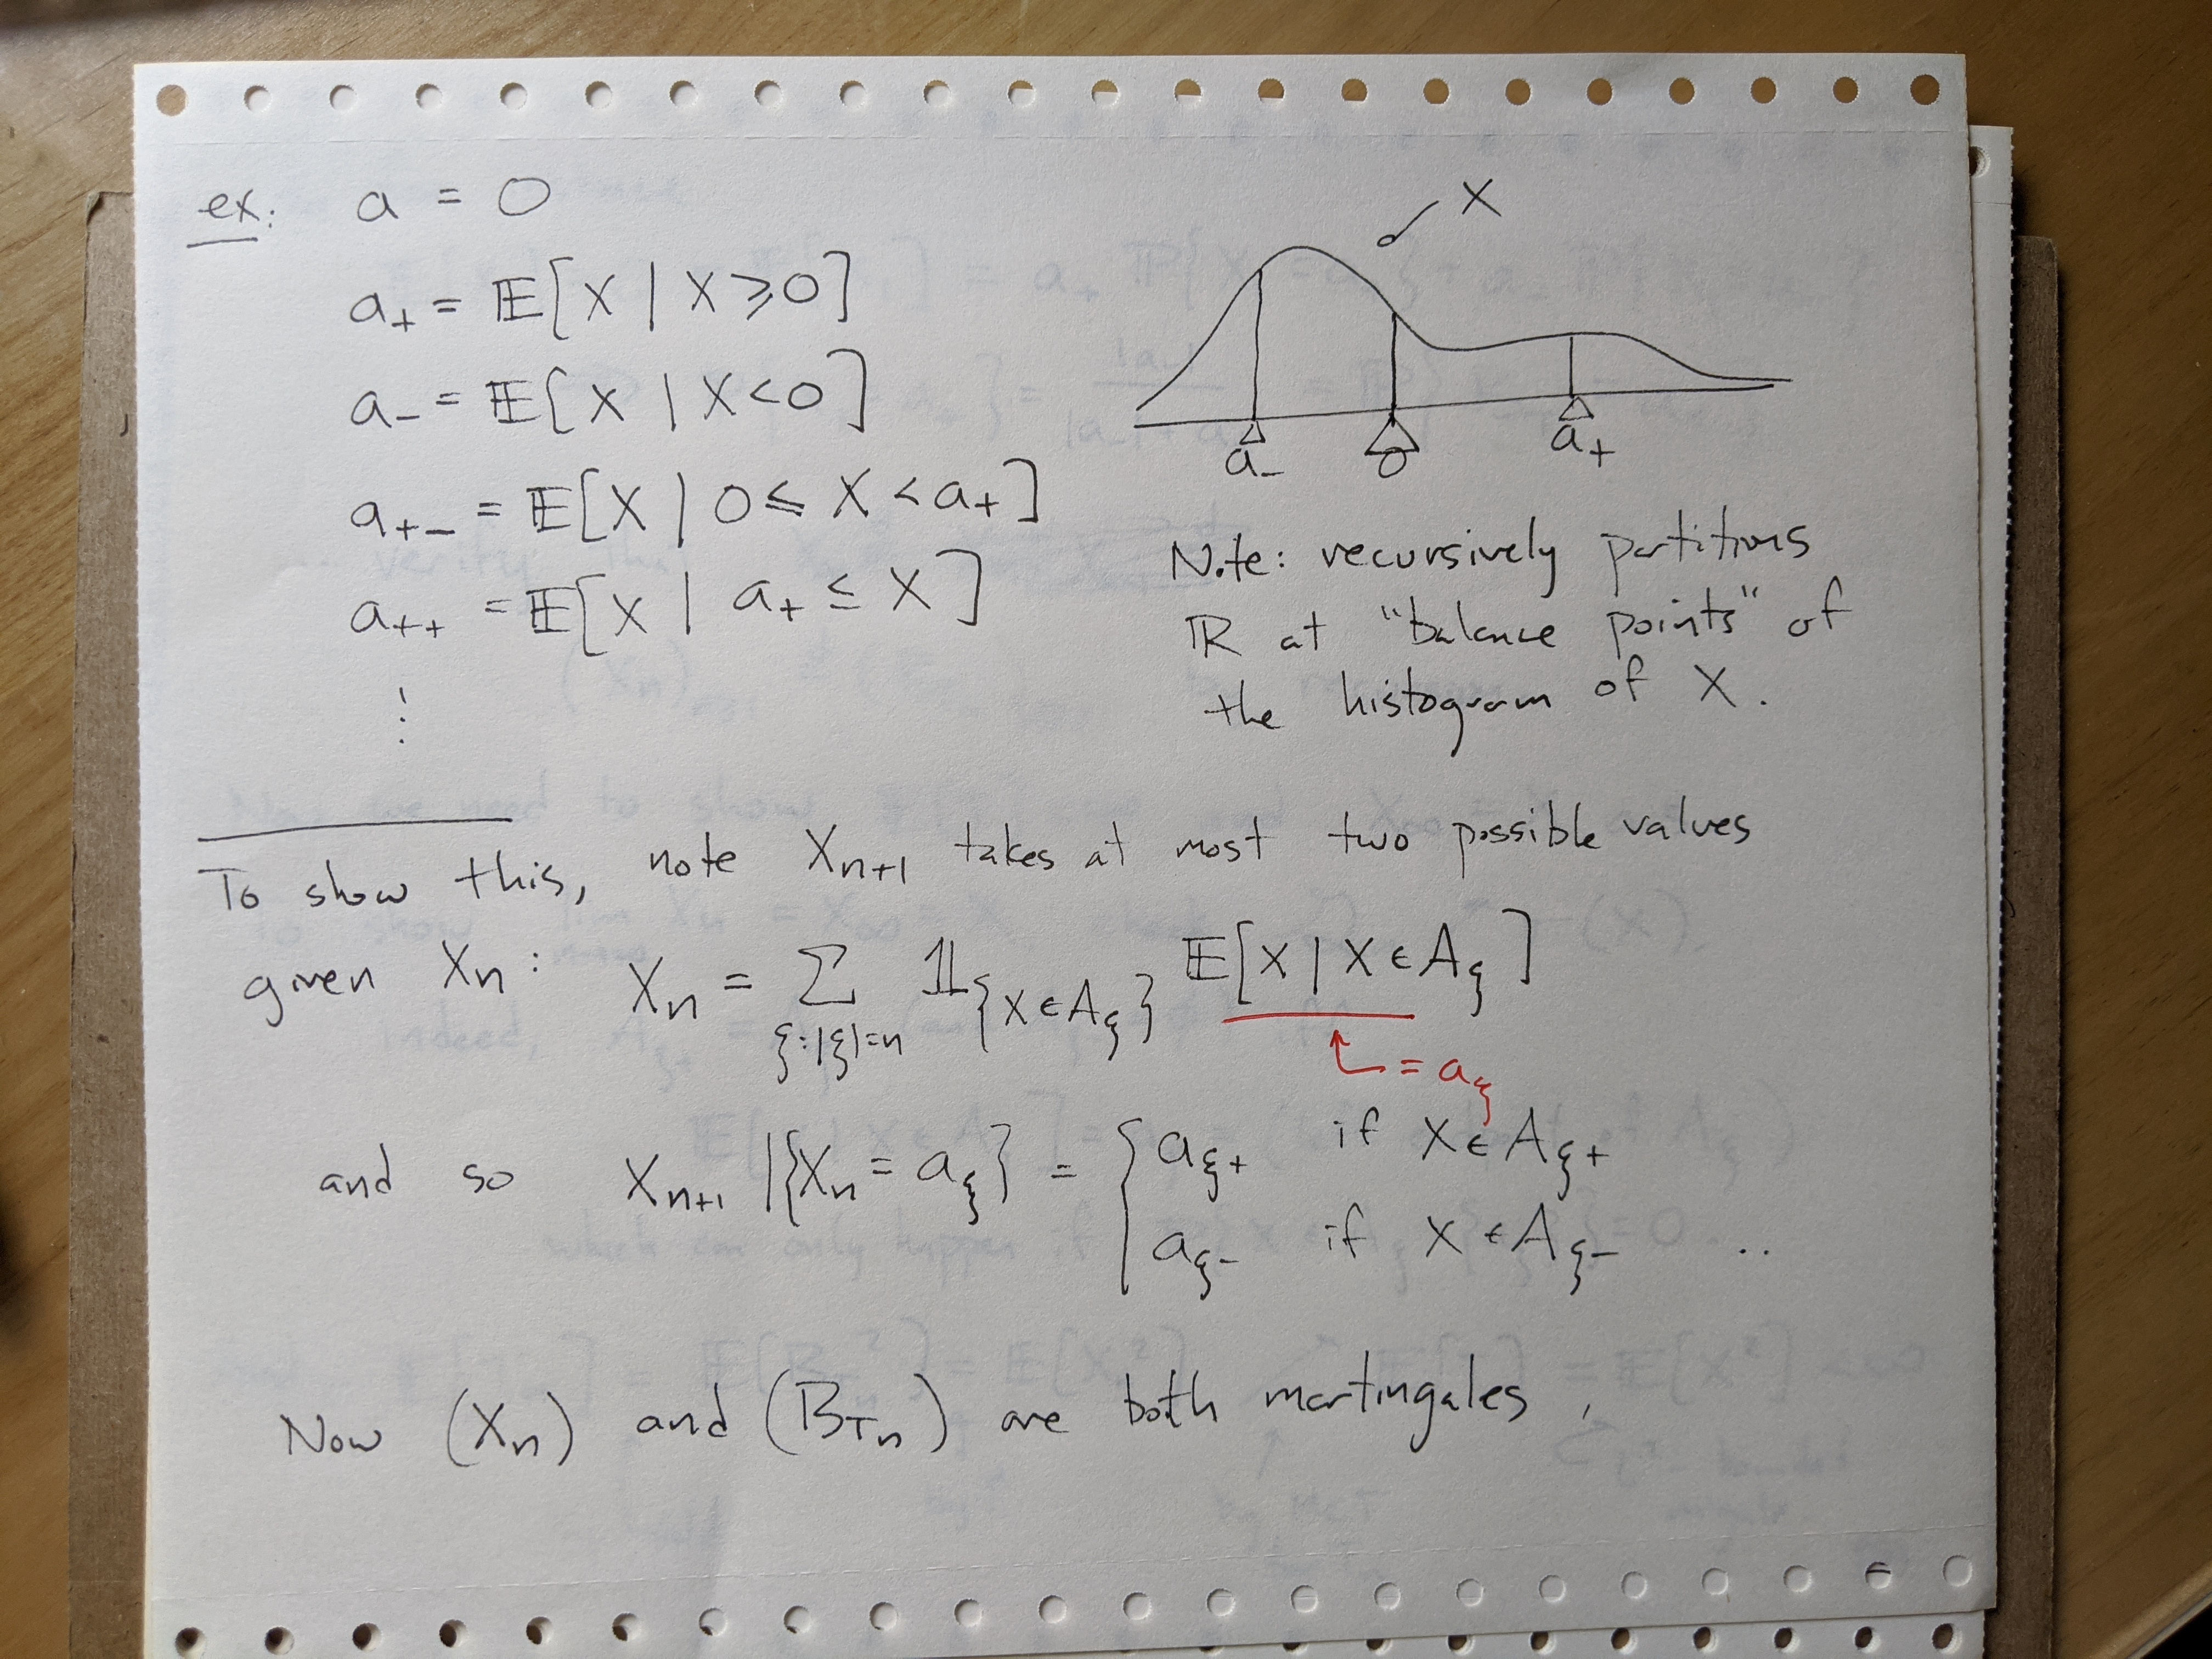 ex: a = 0
a₊ = 𝔼[X | X ⩾ 0]
a₋ = 𝔼[X | X < 0]
a₊₋ = 𝔼[X | 0 ≤ X < a₊]
a₊₊ = 𝔼[X | a₊ ≤ X]
⋮
X
a₋ 0 a₊
Note: recursively partitions
ℝ at "balance points" of
the histogram of X.
To show this, note X_{n+1} takes at most two possible values
given X_n: X_n = Σ_{ξ:|ξ|=n} 𝟙_{\{X ∈ A_ξ\}} 𝔼[X | X ∈ A_ξ]
= a_ξ
and so X_{n+1} | {X_n = a_ξ} = { a_{ξ+} if X ∈ A_{ξ+}
a_{ξ-} if X ∈ A_{ξ-} ..
Now (X_n) and (B_{T_n}) are both martingales,